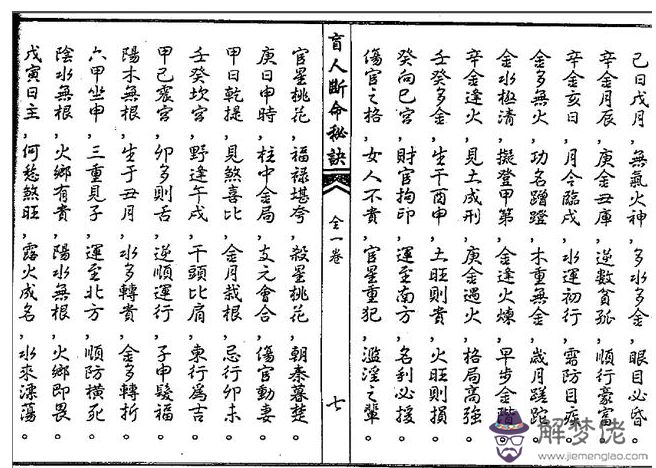 己日戊月，無氣火神，多水多金，眼目必昏。
辛金月辰，庚金丑庫，逆數貧孤，順行豪富。
辛金亥日，月令臨戌，水運初行，需防目疾。
金多無火，功名蹭蹬，木重無金，歲月蹉跎。
金水極清，擬登甲第，金逢火煉，早步金階。
辛金逢火，見土成刑，庚金遇火，格局高強。
壬癸多金，生于酉申，土旺則貴，火旺則損。
癸向巳宮，財官拘印，運至南方，名利必援。
傷官之格，女人不貴，官星重犯，濫淫之輩。
盲人断命秘訣
全一卷
七
官星桃花，福祿堪夸，殺星桃花，朝秦暮楚。
庚日申時，柱中金局，支元會合，傷官動妻。
甲日乾提，見煞喜比，金月栽根，忌行卯未。
壬癸坎宮，野逢午戌，干頭比肩，東行為吉。
甲己震宮，卯多則吉，逆順運行，子申發福。
陽木無根，生于丑月，水多轉貴，金多轉折。
六甲坐申，三重見子，運至北方，順防橫死。
陰水無根，火鄉有貴，陽水無根，火鄉即畏。
戊寅日主，何愁煞旺，露火成名，水來漂蕩。
解梦佬
www.jiemenglao.com